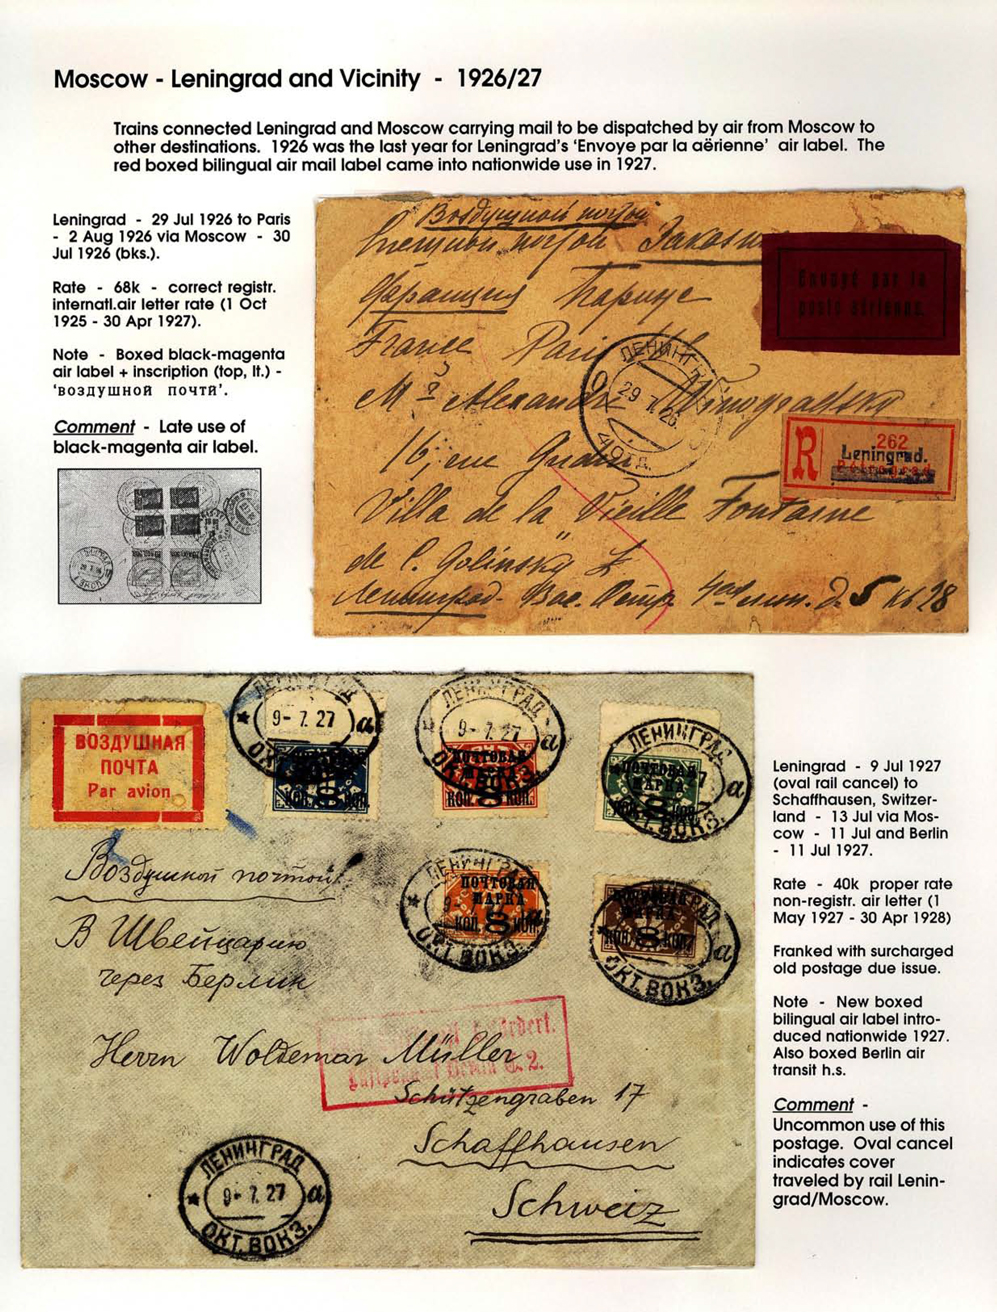 Moscow - Leningrad and Vicinity - 1926/27
Trains connected Leningrad and Moscow carrying mail to be dispatched by air from Moscow to
other destinations. 1926 was the last year for Leningrad's 'Envoye par la aërienne' air label. The
red boxed bilingual air mail label came into nationwide use in 1927.
Leningrad - 29 Jul 1926 to Paris
- 2 Aug 1926 via Moscow - 30
Jul 1926 (bks.).
Rate - 68k - correct registr.
internatl.air letter rate (1 Oct
1925 - 30 Apr 1927).
Note - Boxed black-magenta
air label + inscription (top, lt.) -
'воздушной почти'.
Comment - Late use of
black-magenta air label.
Воздушной почтой
Заказное
Envoyé par la
poste aérienne.
Франция Париж
France Paris
ЛЕНИНГРАД
29 7 26
Mr Alexandre Winogradsky
R
262
Leningrad.
16, rue
Villa de la Vieille Fontaine
de C. Golinsky
Ленинград Вас. Остр. 4ая лин. д. 5 кв 28
ВОЗДУШНАЯ
ПОЧТА
Par avion
ЛЕНИНГРАД
9- 7. 27
а
ОКТ. ВОКЗ.
ЛЕНИНГРАД
9- 7. 27
а
ОКТ. ВОКЗ.
ПОЧТОВАЯ
МАРКА
КОП. 8 КОП.
ЛЕНИНГРАД
а
ОКТ. ВОКЗ.
ПОЧТОВАЯ
МАРКА
КОП. 8 КОП.
ЛЕНИНГРАД
ОКТ. ВОКЗ.
ПОЧТОВАЯ
МАРКА
КОП. 8 КОП.
ЛЕНИНГРАД
а
ОКТ. ВОКЗ.
Воздушной почтой.
В Швейцарию
через Берлин
Herrn Woldemar Müller
Luftpostamt Berlin C. 2.
Schützengraben 17
Schaffhausen
Schweiz
ЛЕНИНГРАД
9- 7. 27
а
ОКТ. ВОКЗ.
Leningrad - 9 Jul 1927
(oval rail cancel) to
Schaffhausen, Switzer-
land - 13 Jul via Mos-
cow - 11 Jul and Berlin
- 11 Jul 1927.
Rate - 40k proper rate
non-registr. air letter (1
May 1927 - 30 Apr 1928)
Franked with surcharged
old postage due issue.
Note - New boxed
bilingual air label intro-
duced nationwide 1927.
Also boxed Berlin air
transit h.s.
Comment -
Uncommon use of this
postage. Oval cancel
indicates cover
traveled by rail Lenin-
grad/Moscow.